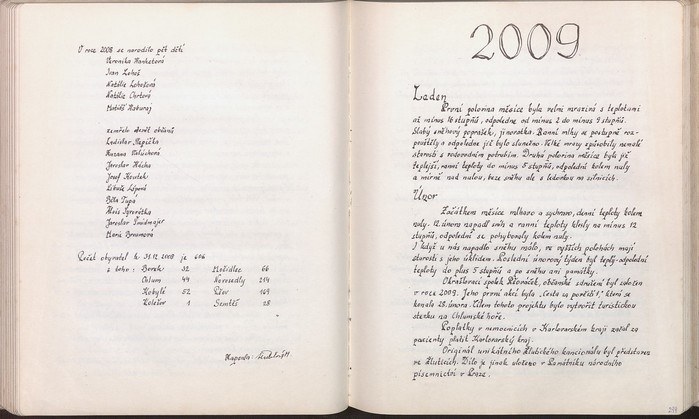 V roce 2008 se narodilo pět dětí
Veronika Hanketová
Ivan Leheš
Natálie Lehešová
Natálie Chrtová
Matěj Haburaj
zemřelo devět občanů
Ladislav Řepička
Zuzana
Jaroslav Mácha
Josef Koutek
Libuše Lípová
Běla Tupá
Alois Syrovátka
Jaroslav Šmidmajer
Marie Broumová
Počet obyvatel k 31.12.2008 je 606
z toho: Borek 32 Mostidlec 66
Chlum 44 Novosedly 214
Kobylé 52 Pšov 169
Kolešov 1 Semtěš 28
Zapsala:
2009
Leden
První polovina měsíce byla velmi mrazivá s teplotami
až mínus 16 stupňů, odpoledne od mínus 2 do mínus 9 stupňů.
Slabý sněhový poprašek, jinovatka. Ranní mlhy se postupně roz-
pouštěly a odpoledne již bylo slunečno. Velké mrazy způsobily nemalé
starosti s vodovodním potrubím. Druhá polovina měsíce byla již
teplejší, ranní teploty do mínus 5 stupňů, odpolední kolem nuly
a mírně nad nulou, beze sněhu ale s ledovkou na silnicích.
Únor
Začátkem měsíce mlhavo a sychravo, denní teploty kolem
nuly. 12. února napadl sníh a ranní teploty klesly na mínus 12
stupňů, odpolední se pohybovaly kolem nuly.
I když u nás napadlo sněhu málo, ve vyšších polohách mají
starosti s jeho úklidem. Poslední únorový týden byl teplý - odpolední
teploty do plus 5 stupňů a po sněhu ani památky.
Okrašlovací spolek Pšováček, občanské sdružení byl založen
v roce 2009. Jeho první akcí byla „Cesta za pověstí 1," která se
konala 28. února. Cílem tohoto projektu bylo vytvořit turistickou
stezku na Chlumské hoře.
Poplatky v nemocnicích v Karlovarském kraji začal za
pacienty platit Karlovarský kraj.
Originál unikátního Žlutického kancionálu byl představen
ve Žluticích. Dílo je jinak uloženo v Památníku národního
písemnictví v Praze.